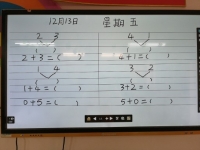 12月13日 星期五
2 3 4 1
2+3=( ) 4+1=( )
1 4 3 2
1+4=( ) 3+2=( )
0+5=( ) 5+0=( )